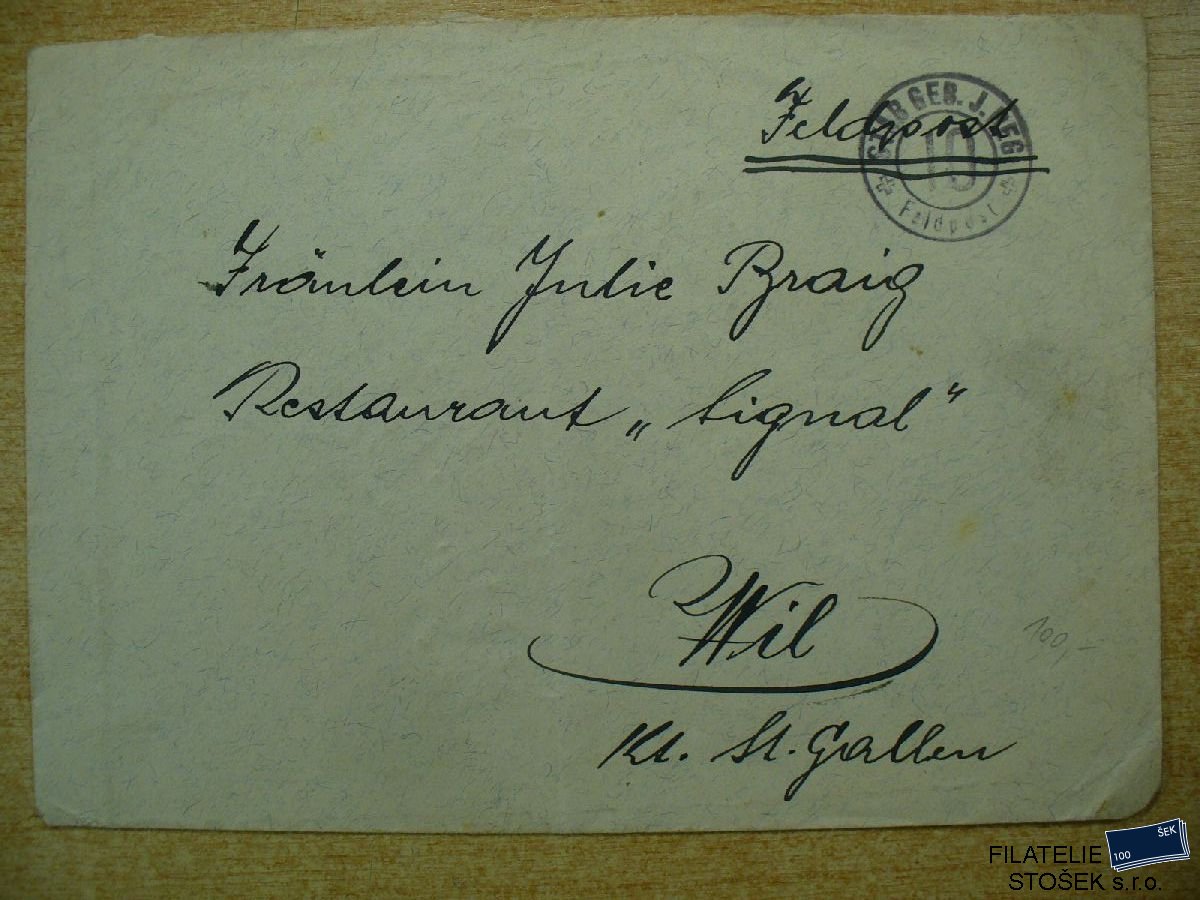 Feldpost
STAB GEB. J. REG
10
Feldpost
Fräulein Julie Braig
Restaurant „Signal"
Wil
100,-
Kt. St. Gallen
ŠEK
100
FILATELIE
STOŠEK s.r.o.